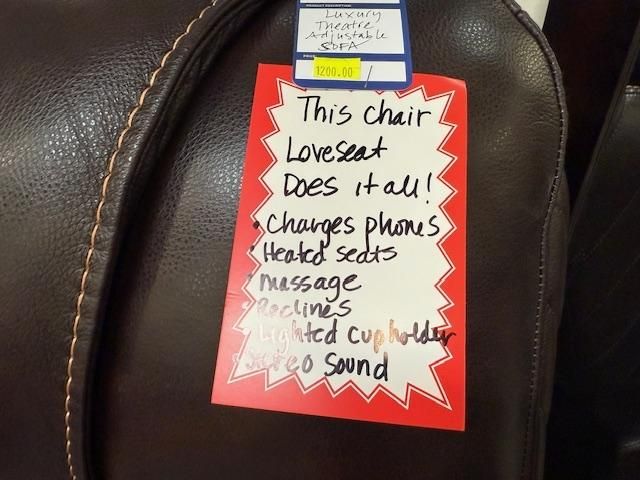 PRODUCT DESCRIPTION
Luxury
Theatre
Adjustable
SOFA
PRICE
1200.00 /
This chair
Loveseat
Does it all!
• Charges phones
• Heated seats
• massage
• Reclines
• Lighted cupholder
• Stereo Sound